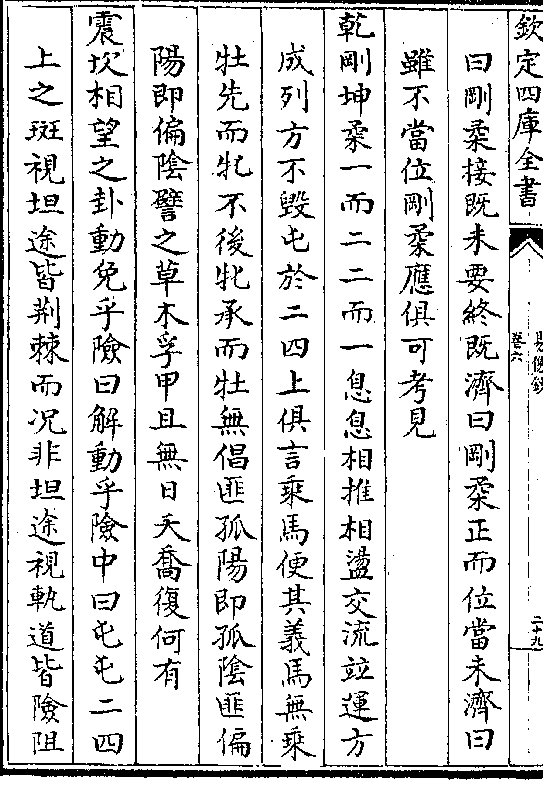 欽定四庫全書
卷六
二十九
曰剛柔接既未要終既濟曰剛柔正而位當未濟曰
雖不當位剛柔應俱可考見
乾剛坤柔一而二二而一息息相推相盪交流竝運方
成列方不毀屯於二四上俱言乘馬便其義馬無乘
牡先而牝不後牝承而牡無倡匪孤陽即孤陰匪偏
陽即偏陰譬之草木孚甲且無日夭喬復何有
震坎相望之卦動免乎險曰解動乎險中曰屯屯二四
上之班視坦途皆荆棘而况非坦途視軌道皆險阻